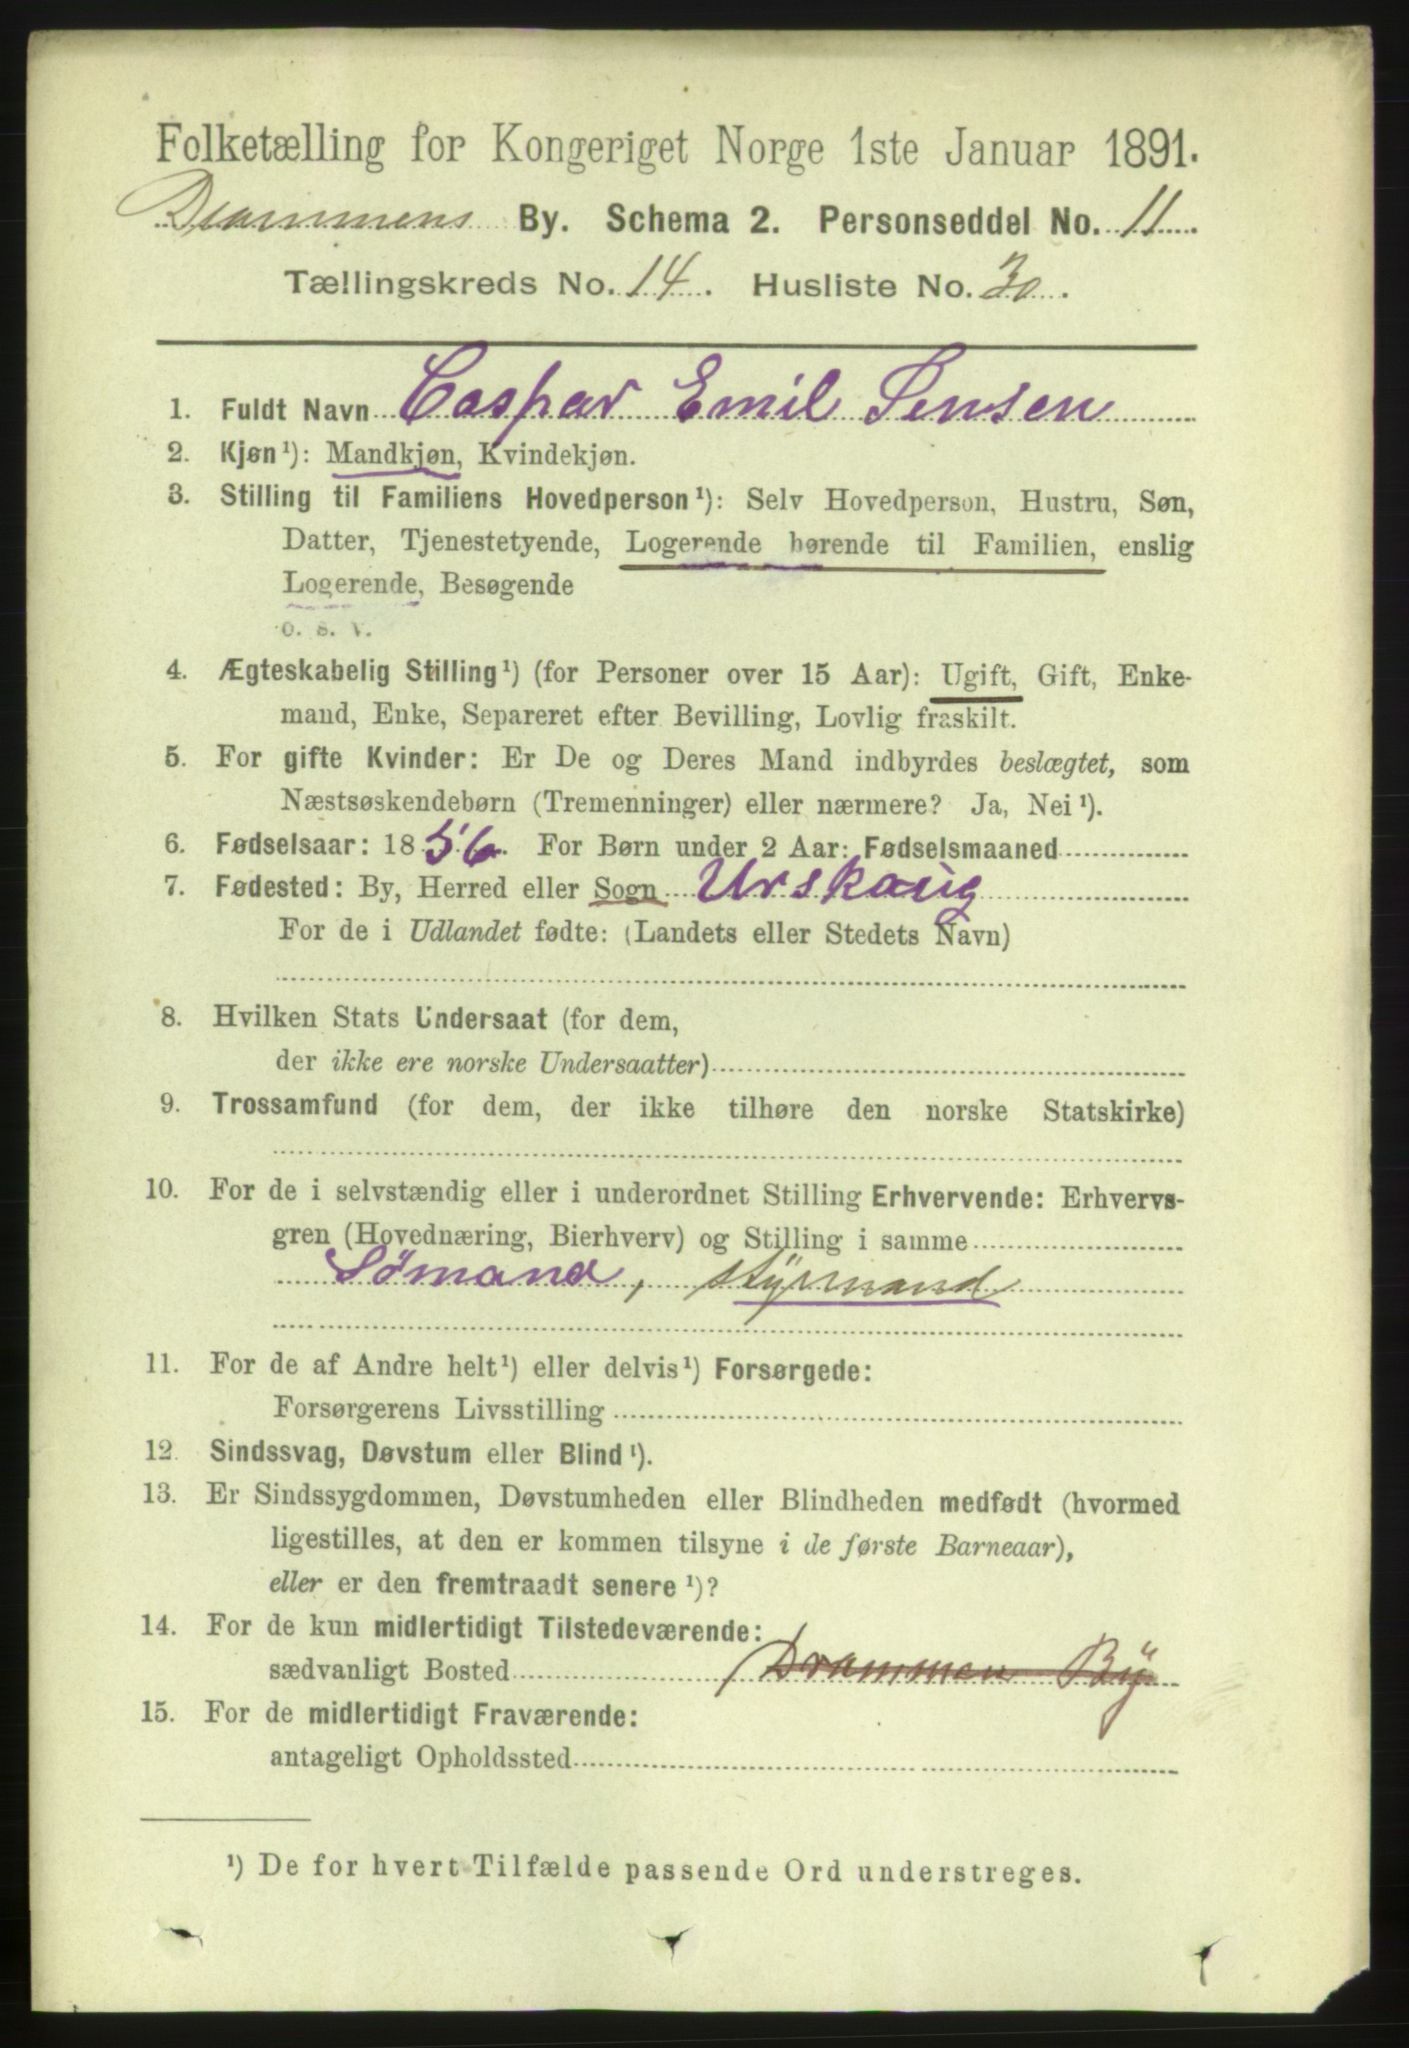 Folketælling for Kongeriget Norge 1ste Januar 1891.
Drammens By. Schema 2. Personseddel No. 11
Tællingskreds No. 14. Husliste No. 30.
1. Fuldt Navn Caspar Emil Jensen
2. Kjøn¹): Mandkjøn, Kvindekjøn.
3. Stilling til Familiens Hovedperson¹): Selv Hovedperson, Hustru, Søn,
Datter, Tjenestetyende, Logerende hørende til Familien, enslig
Logerende, Besøgende
o. s. v.
4. Ægteskabelig Stilling¹) (for Personer over 15 Aar): Ugift, Gift, Enke-
mand, Enke, Separeret efter Bevilling, Lovlig fraskilt.
5. For gifte Kvinder: Er De og Deres Mand indbyrdes beslægtet, som
Næstsøskendebørn (Tremenninger) eller nærmere? Ja, Nei¹).
6. Fødselsaar: 1856. For Børn under 2 Aar: Fødselsmaaned
7. Fødested: By, Herred eller Sogn Urskaug
For de i Udlandet fødte: (Landets eller Stedets Navn)
8. Hvilken Stats Undersaat (for dem,
der ikke ere norske Undersaatter)
9. Trossamfund (for dem, der ikke tilhøre den norske Statskirke)
10. For de i selvstændig eller i underordnet Stilling Erhvervende: Erhvervs-
gren (Hovednæring, Bierhverv) og Stilling i samme
Sømand, styrmand
11. For de af Andre helt¹) eller delvis¹) Forsørgede:
Forsørgerens Livsstilling
12. Sindssvag, Døvstum eller Blind¹).
13. Er Sindssygdommen, Døvstumheden eller Blindheden medfødt (hvormed
ligestilles, at den er kommen tilsyne i de første Barneaar),
eller er den fremtraadt senere¹)?
14. For de kun midlertidigt Tilstedeværende:
sædvanligt Bosted Drammen By
15. For de midlertidigt Fraværende:
antageligt Opholdssted
¹) De for hvert Tilfælde passende Ord understreges.